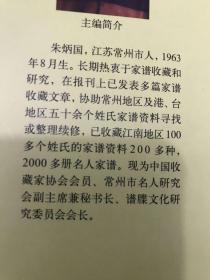 主编简介
朱炳国，江苏常州市人，1963
年8月生。长期热衷于家谱收藏和
研究，在报刊上已发表多篇家谱
收藏文章，协助常州地区及港、台
地区五十余个姓氏家谱资料寻找
或整理续修，已收藏江南地区100
多个姓氏的家谱资料200多种，
2000多册名人家谱。现为中国收
藏家协会会员、常州市名人研究
会副主席兼秘书长、谱牒文化研
究委员会会长。